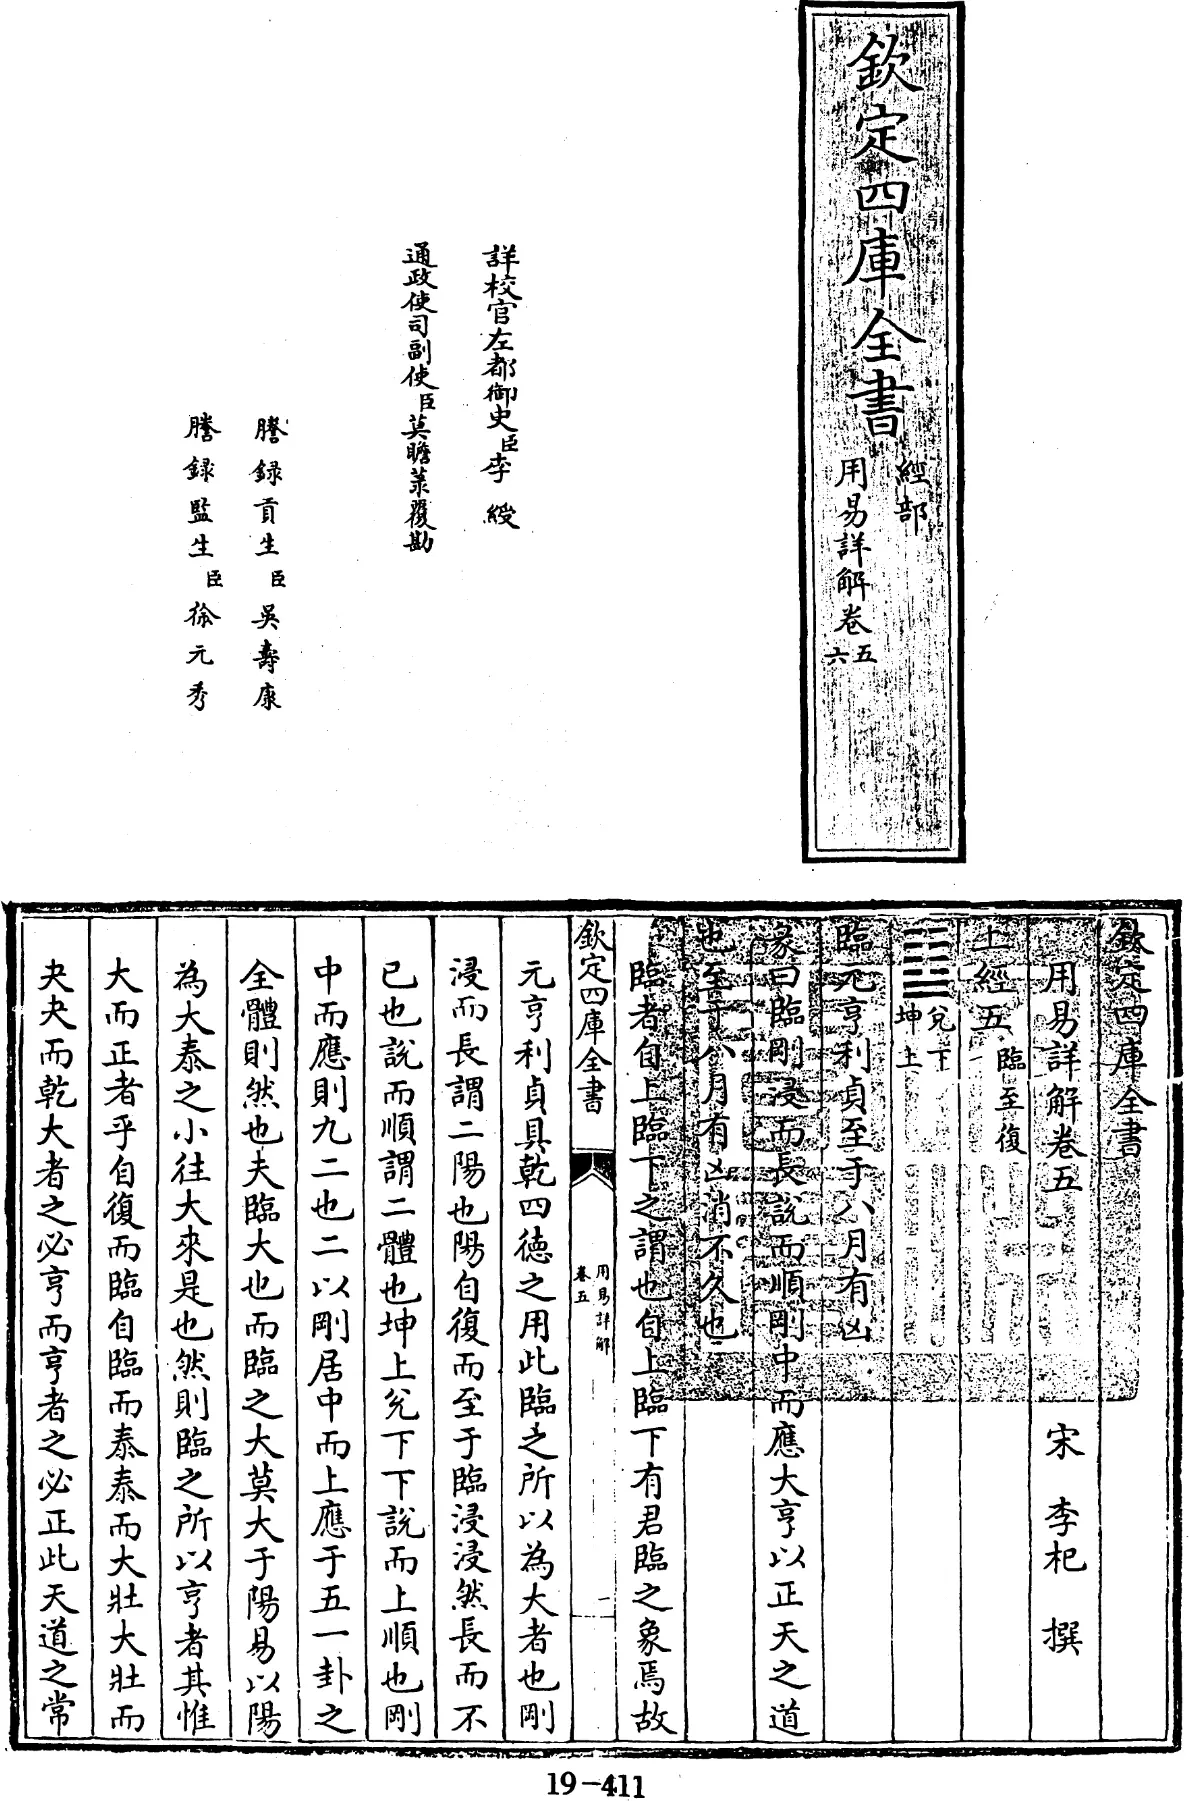 欽定四庫全書
經部
用易詳解卷五
六
詳校官左都御史臣李綬
通政使司副使臣莫瞻菉覆勘
謄錄貢生臣吳壽康
謄錄監生臣徐元秀
欽定四庫全書
用易詳解卷五 宋 李杞 撰
上經五 臨至復
兌下
坤上
臨元亨利貞至于八月有凶
彖曰臨剛浸而長說而順剛中而應大亨以正天之道
也至于八月有凶消不久也
臨者自上臨下之謂也自上臨下有君臨之象焉故
欽定四庫全書
用易詳解
卷五
一
元亨利貞具乾四德之用此臨之所以為大者也剛
浸而長謂二陽也陽自復而至于臨浸浸然長而不
已也說而順謂二體也坤上兌下下說而上順也剛
中而應則九二也二以剛居中而上應于五一卦之
全體則然也夫臨大也而臨之大莫大于陽易以陽
為大泰之小往大來是也然則臨之所以亨者其惟
大而正者乎自復而臨自臨而泰泰而大壯大壯而
夬夬而乾大者之必亨而亨者之必正此天道之常
19-411